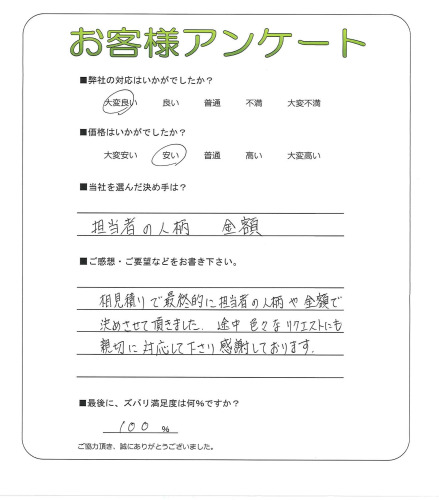 お客様アンケート
■弊社の対応はいかがでしたか？
大変良い 良い 普通 不満 大変不満
■価格はいかがでしたか？
大変安い 安い 普通 高い 大変高い
■当社を選んだ決め手は？
担当者の人柄 金額
■ご感想・ご要望などをお書き下さい。
相見積りで最終的に担当者の人柄や金額で
決めさせて頂きました. 途中 色々なリクエストにも
親切に対応して下さり感謝しております.
■最後に、ズバリ満足度は何%ですか？
100 %
ご協力頂き、誠にありがとうございました。